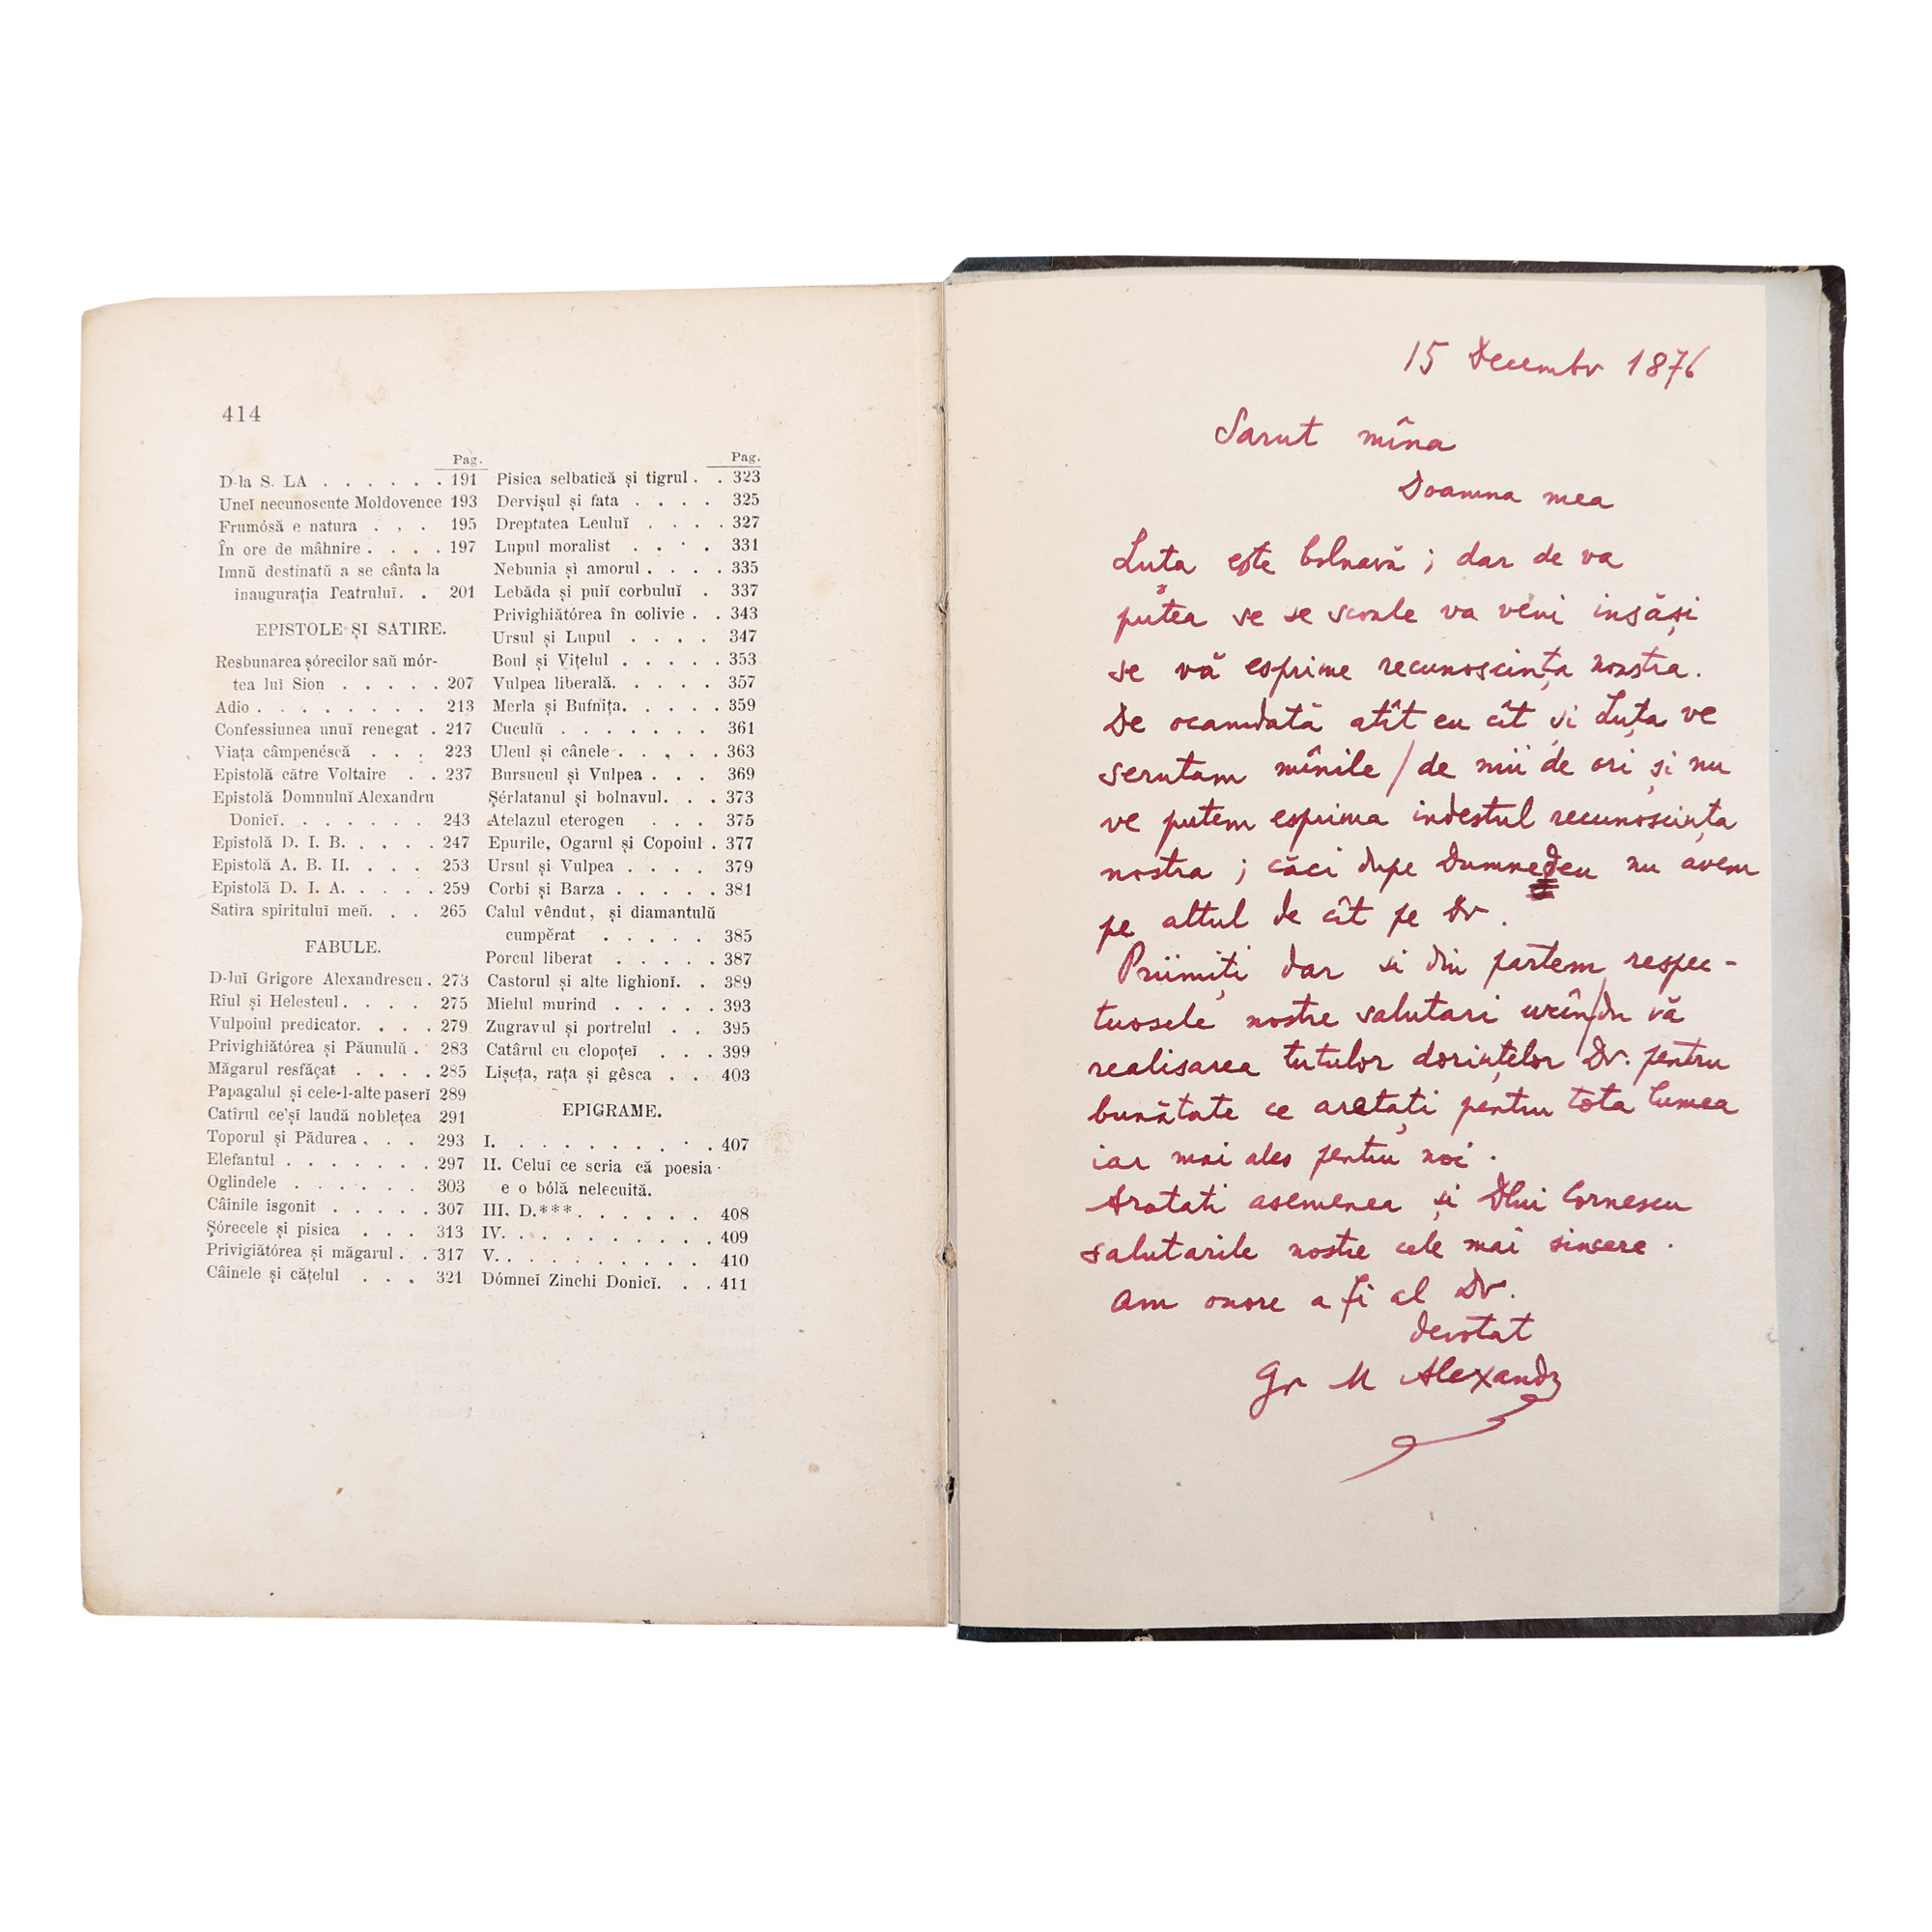 414
Pag.
D-la S. LA . . . . . . 191
Unei necunoscute Moldovence 193
Frumósă e natura . . . 195
În ore de mâhnire . . . . 197
Imnŭ destinatŭ a se cânta la
inaugurația Teatruluĭ. . 201
EPISTOLE ȘI SATIRE.
Resbunarea șórecilor saŭ mór-
tea luĭ Sion . . . . . 207
Adio . . . . . . . . 213
Confessiunea unuĭ renegat . 217
Viața câmpenéscă . . . 223
Epistolă către Voltaire . . 237
Epistolă Domnuluĭ Alexandru
Donicĭ. . . . . . . 243
Epistolă D. I. B. . . . . 247
Epistolă A. B. II. . . . 253
Epistolă D. I. A. . . . . 259
Satira spirituluĭ meŭ. . . 265
FABULE.
D-luĭ Grigore Alexandrescu . 273
Rîul și Helesteul . . . . 275
Vulpoiul predicator. . . . 279
Privighiătórea și Păunulŭ . 283
Măgarul resfăçat . . . . 285
Papagalul și cele-l-alte paserĭ 289
Catîrul ce'șĭ laudă noblețea 291
Toporul și Pădurea . . . 293
Elefantul . . . . . . . 297
Oglindele . . . . . . 303
Câinile isgonit . . . . . 307
Șórecele și pisica . . . 313
Privigiătórea și măgarul . . 317
Câinele și cățelul . . . 321
Pag.
Pisica selbatică și tigrul . . 323
Dervișul și fata . . . . 325
Dreptatea Leuluĭ . . . . 327
Lupul moralist . . . . 331
Nebunia și amorul . . . . 335
Lebăda și puiĭ corbuluĭ . 337
Privighiătórea în colivie . . 343
Ursul și Lupul . . . . 347
Boul și Vițelul . . . . . 353
Vulpea liberală. . . . . 357
Merla și Bufnița. . . . . 359
Cuculŭ . . . . . . . 361
Uleul și cânele . . . . . 363
Bursucul și Vulpea . . . 369
Șérlatanul și bolnavul. . . 373
Atelazul eterogen . . . 375
Epurile, Ogarul și Copoiul . 377
Ursul și Vulpea . . . . 379
Corbi și Barza . . . . . 381
Calul vêndut, și diamantulŭ
cumpĕrat . . . . . 385
Porcul liberat . . . . . 387
Castorul și alte lighionĭ. . 389
Mielul murind . . . . . 393
Zugravul și portrelul . . 395
Catârul cu clopoțeĭ . . . 399
Lișeța, rața și gêsca . . 403
EPIGRAME.
I. . . . . . . . . . 407
II. Celuĭ ce scria că poesia
e o bólă nelecuită.
III. D.***. . . . . . 408
IV. . . . . . . . . . 409
V. . . . . . . . . . 410
Dómneĭ Zinchi Donicĭ. . . 411
15 Decembr 1876
Sarut mîna
Doamna mea
Luța este bolnavă ; dar de va
putea se se scoale va veni insăși
se vă esprime recunoscința noastra.
De ocamdată atît eu cît și Luța ve
serutam mînile / de mii de ori și nu
ve putem esprima indestul recunoscința
nostra ; căci dupe Dumnedeu nu avem
pe altul de cît pe Dv.
Priimiți dar si din partem respec-
tuosele nostre salutari urîn/du vă
realisarea tutulor dorințelor Dv. pentru
bunătate ce aretați pentru tota lumea
iar mai ales pentru noi .
Aratati asemenea și Dlui Cornescu
salutarile nostre cele mai sincere .
Am onore a fi al Dv.
devotat
Gr M Alexandr